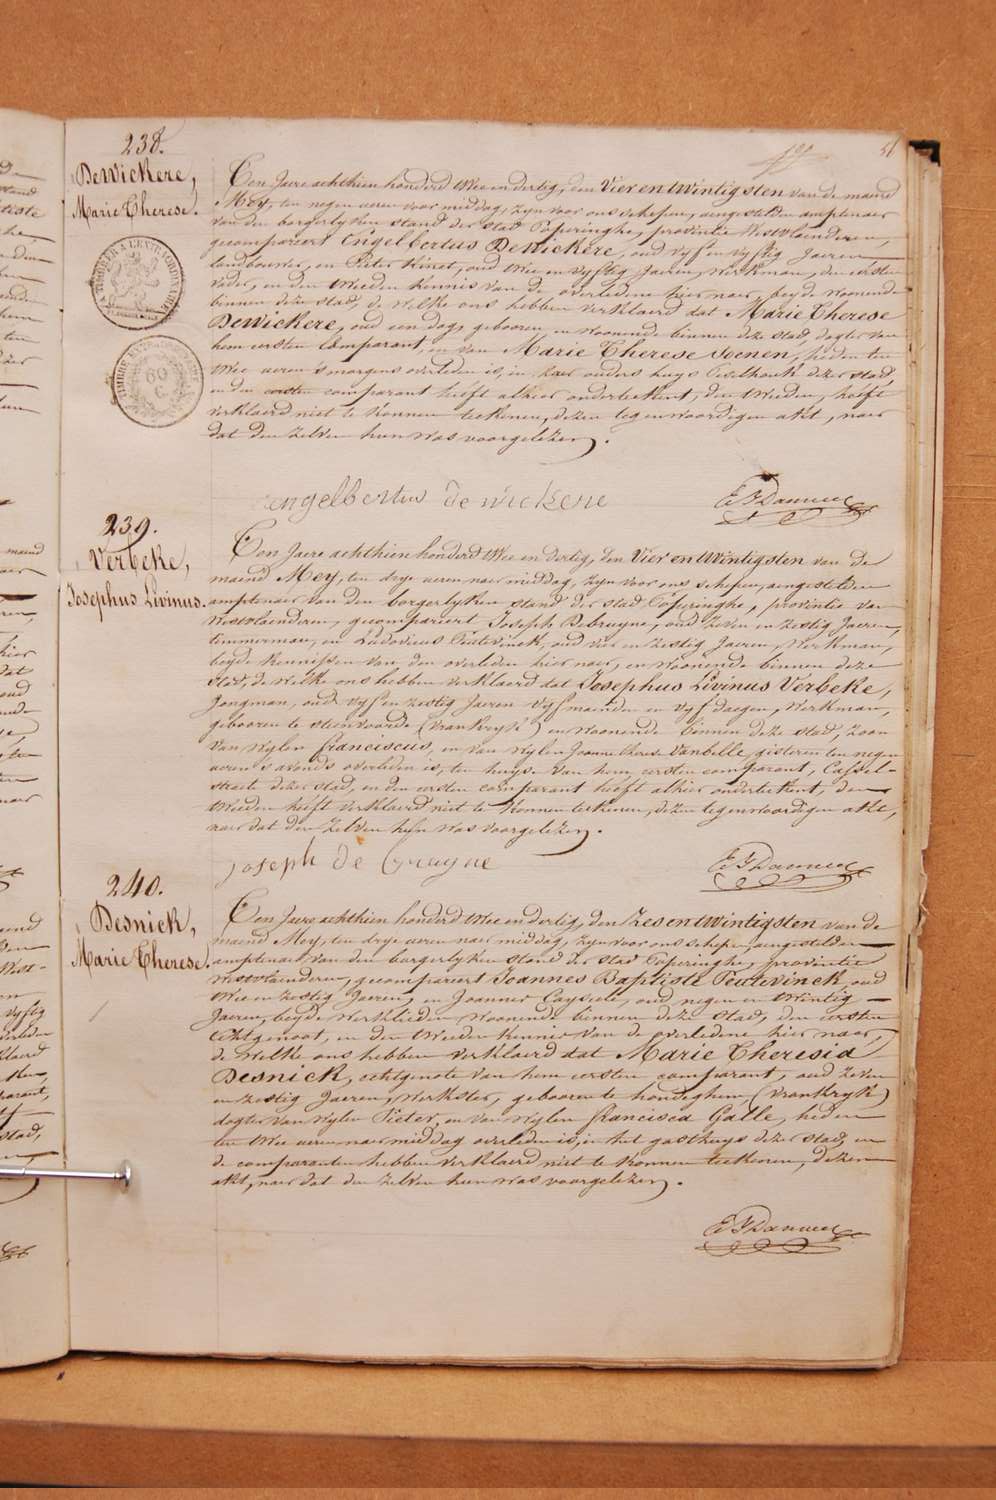 51
238.
DeWickere,
Marie Therese.
Een Jaere achthien honderd twee en dertig, den Vier en twintigsten van de maend
Mey, ten negen ueren voor middag, zyn voor ons schepen, aengestelden amptenaer
van den borgerlyken stand der stad Poperinghe, provintie Westvlaenderen,
gecompareert Engelbertus DeWickere, oud vyf en vyftig Jaeren
landbouwer, en Pieter Kinet, oud twee en vyftig Jaeren, werkman, den eersten
vader, en den tweeden kennis van de overledene hier naer, beyde woonende
binnen deze stad, de welke ons hebben verklaerd dat Marie Therese
DeWickere, oud een dag, gebooren, en woonende binnen deze stad, dogter van
hem eersten Comparant, en van Marie Therese Soenen, heden ten
twee ueren s'morgens overleden is, in haer ouders huys Peselhoek dezer stad,
en den eersten comparant heeft alhier onderteekent, den tweeden, heeft
verklaerd niet te konnen teekenen, dezen tegenwoordigen akt, naer
dat den zelven hun was voorgelezen.
engelbertus de wickere
239.
Verbeke,
Josephus Livinus.
Een Jaere achthien honderd twee en dertig, den Vier en twintigsten van de
maend Mey, ten drye ueren naer middag, zyn voor ons schepen, aengestelden
amptenaer van den borgerlyken stand der stad Poperinghe, provintie van
Westvlaenderen, gecompareert Joseph Debruyne, oud zeven en zestig Jaeren,
timmerman, en Ludovicus Peutevinck, oud vier en zestig Jaeren, Werkman,
beyde kennissen van den overleden hier naer, en woonende binnen deze
stad, de welke ons hebben verklaerd dat Josephus Livinus Verbeke,
Jongman, oud vyf en zestig Jaeren vyf maenden en vyf daegen, Werkman,
gebooren te steenvoorde (Vrankryk) en woonende binnen deze stad, zoon
van wylen franciscus, en van wylen Joanne therese Vanbelle, gisteren ten negen
ueren s'avonds overleden is, ten huyse van hem eersten comparant, Cassel-
straete dezer stad, en den eersten comparant heeft alhier onderteekent, den
tweeden heeft verklaerd niet te konnen teekenen, dezen tegenwoordigen akt,
naer dat den zelven hun was voorgelezen.
joseph de Bruyne
240.
Desnick,
Marie Therese.
Een Jaere achthien honderd twee en dertig, den Zes en twintigsten van de
maend Mey, ten drye ueren naer middag, zyn voor ons schepen, aengestelden
amptenaer van den borgerlyken stand der stad Poperinghe, provintie
Westvlaenderen, gecompareert Joannes Baptiste Peutevinck, oud
twee en zestig Jaeren, en Joannes Cayseele, oud negen en twintig
Jaeren, beyde werklieden woonende binnen deze stad, den eersten
Echtgenoot, en den tweeden kennis van de overledene hier naer,
de welke ons hebben verklaerd dat Marie Theresia
Desnick, echtgenote van hem eersten comparant, oud zeven
en zestig Jaeren, Werkster, gebooren te hondeghem, (Vrankryk)
dogter van wylen Pieter, en van wylen francisca Galle, heden
ten twee ueren naer middag overleden is, in het gasthuys dezer stad, en
de comparanten hebben verklaerd niet te konnen teekenen, dezen
akt, naer dat den zelven hun was voorgelezen.